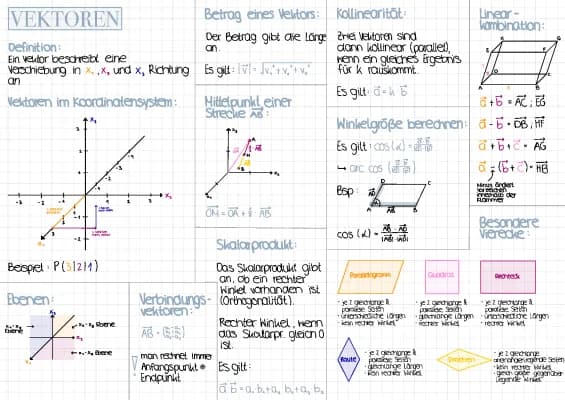 VEKTOREN
Definition:
Ein Vektor beschreibt eine
Verschiebung in x₁, x₂, und x₃ Richtung
an
Vektoren im Koordinatensystem:
Beispiel: P(3|2|1)
Ebenen:
Ebene
Ebene
Ebene
Verbindungs-
vektoren:
man rechnet immer
Anfangspunkt
Endpunkt
Betrag eines Vektors:
Der Betrag gibt die Länge
an.
Es gilt: |v| = √v₁² + v₂² + v₃²
Mittelpunkt einer
Strecke AB:
OM = OA + ½ · AB
Skalarprodukt:
Das Skalarprodukt gibt
an, ob ein rechter
Winkel vorhanden ist
(Orthogonalität).
Rechter Winkel, wenn
das Skalarpr. gleich 0
ist.
Es gilt:
a · b = a₁ b₁ + a₂ b₂ + a₃ b₃
Kollinearität:
Zwei Vektoren sind
dann kollinear (parallel),
wenn ein gleiches Ergebnis
für k rauskommt.
Es gilt: a = k · b
Winkelgröße berechnen:
Es gilt: cos (α) =
↳ arc cos
Bsp:
D
C
A
B
AD
AB
cos (α) = AB · AD
|AB| · |AD|
Linear-
kombination:
a + b = AC ; EG
a - b = DB ; HF
a + b + c = AG
a - (b + c) = HB
Minus ändert
Vorzeichen
innerhalb der
Klammer
Besondere
Vierecke:
Parallelogramm
Quadrat
Rechteck
- je 2 gleichlange &
parallele Seiten
- unterschiedliche Längen
- kein rechter Winkel
- je 2 gleichlange &
parallele Seiten
- gleichlange Längen
- rechter Winkel
- je 2 gleichlange &
parallele Seiten
- unterschiedliche Längen
- rechter Winkel
Raute
- je 2 gleichlange &
parallele Seiten
- gleichlange Längen
- kein rechter Winkel
Drachen
- je 2 gleichlange
aneinanderliegende Seiten
- kein rechter Winkel
- gleich große gegenüber
liegende Winkel